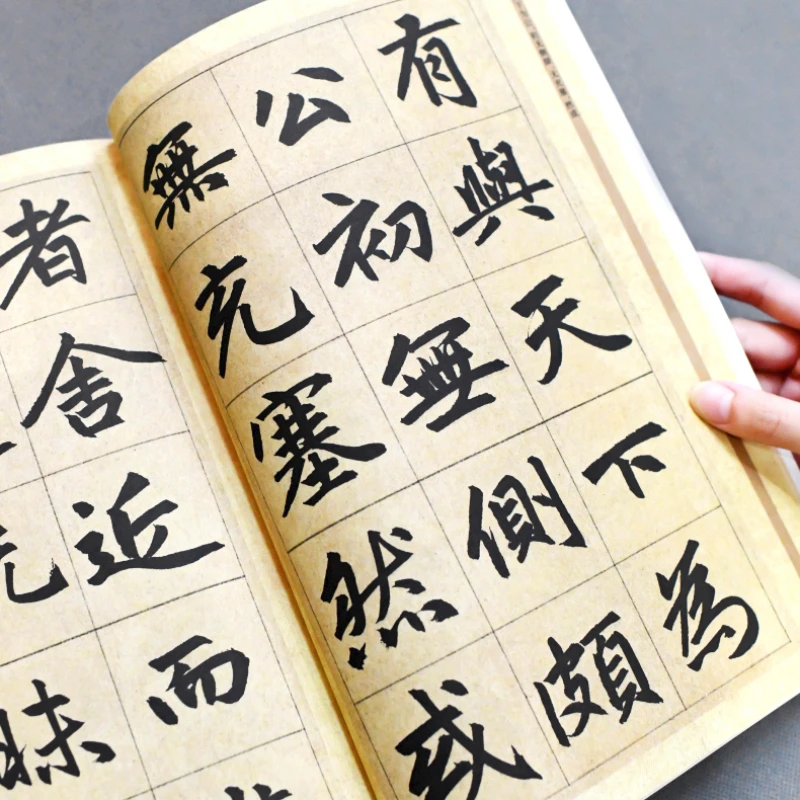 有與天下為
公初無側頗
無充塞然或
者舍近而
昧